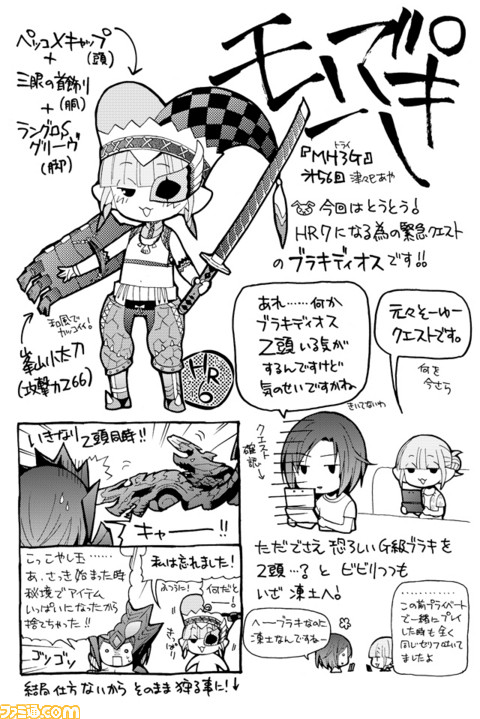 モンハンブキ
『MH3G』
トライ
第56回 津々巳あや
ペッコXキャップ
(頭)
+
三眼の首飾り
(胴)
+
ラングロSグリーヴ
(脚)
和風で
カッコイイ!
峯山小太刀
(攻撃力266)
HR
6
今回はとうとう!
HR7になる為の緊急クエスト
のブラキディオスです!!
あれ……何か
ブラキディオス
2頭いる気が
するんですけど
気のせいですかね
元々そーゆー
クエストです。
何を
今さら
きいてないわ
クエスト
確認→
ただでさえ恐ろしいG級ブラキを
2頭…?とビビりつつも
いざ凍土へ。
いきなり2頭同時!!
キャーー!!
こっこやし玉……
あ、さっき始まった時
秘境でアイテム
いっぱいになったから
捨てちゃった!!
ゴンゴン
私は忘れました!
ふつうに!
何だと!
さっぱり
へーブラキなのに
凍土なんですねー
……
この前プライベート
で一緒にプレイ
した時も全く
同じセリフ吐いて
ましたよ
結局仕方ないからそのまま狩る事に!↓
ファミ通.com